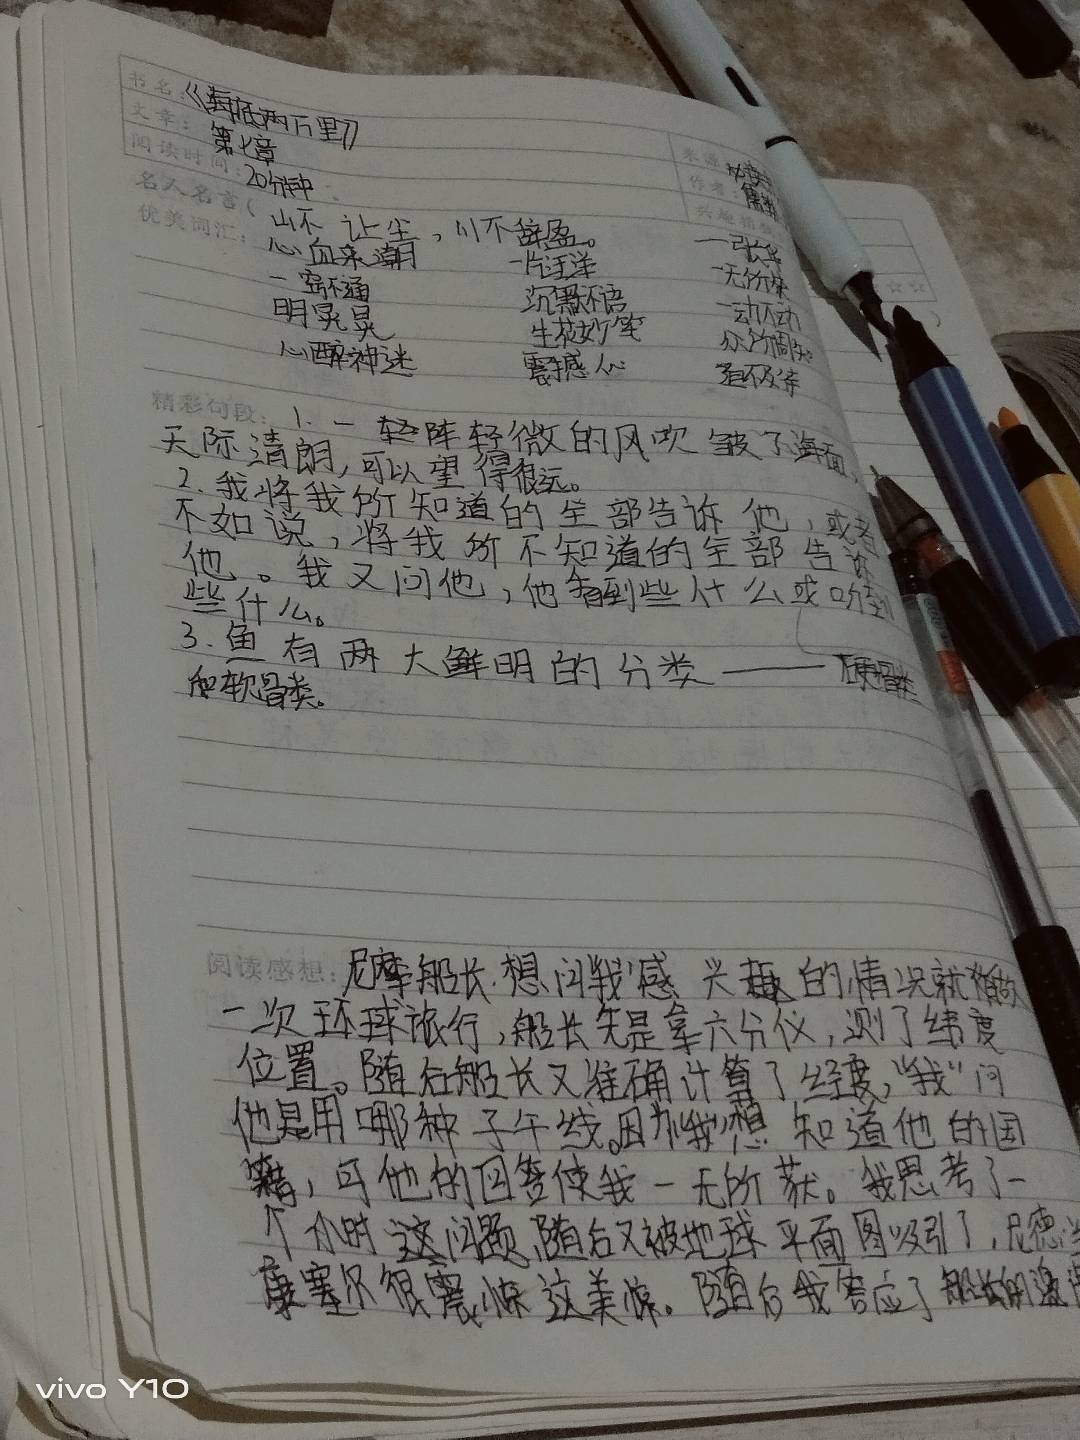 书名：《海底两万里》
文章：第七章
阅读时间：20分钟
作者：儒勒
名人名言（山不让尘，川不辞盈。
优美词汇：心血来潮 一片汪洋 一张一
一窍不通 沉默不语 一无所
明晃晃 生花妙笔 一动不动
心醉神迷 震撼人心 众所周知
迫不及待
精彩句段：1.一轻阵轻微的风吹皱了海面，
天际清朗，可以望得很远。
2.我将我所知道的全部告诉他，或者
不如说，将我所不知道的全部告诉
他。我又问他，他看到些什么或听到
些什么。
3.鱼有两大鲜明的分类——硬骨类
和软骨类。
阅读感想：尼摩船长想问我感兴趣的情况就
一次环球旅行，船长先是拿六分仪，测了纬度
位置。随后船长又准确计算了经度，“我”问
他是用哪种子午线。因为我想知道他的国
籍，可他的回答使我一无所获。我思考了一
个小时这问题，随后又被地球平面图吸引了，尼德
康塞尔很震惊这美惊。随后我答应了船长的邀
vivo Y10